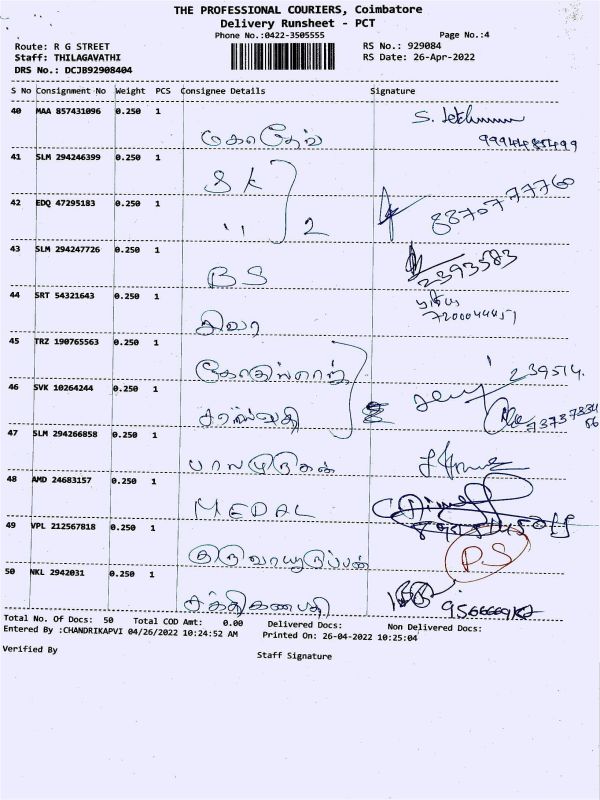 THE PROFESSIONAL COURIERS, Coimbatore
Delivery Runsheet - PCT
Phone No.:0422-3505555 Page No.:4
Route: R G STREET RS No.: 929084
Staff: THILAGAVATHI RS Date: 26-Apr-2022
DRS No.: DCJB92908404
S No Consignment No Weight PCS Consignee Details Signature
40 MAA 857431096 0.250 1
மகாதேவ் 9994485499
41 SLM 294246399 0.250 1
S K
42 EDQ 47295183 0.250 1
" 2 88707 77760
43 SLM 294247726 0.250 1
BS 2393583
44 SRT 54321643 0.250 1
சிவா 7200044451
45 TRZ 190765563 0.250 1
239514.
46 SVK 10264244 0.250 1
சரஸ்வதி
47 SLM 294266858 0.250 1
பாலமுருகன்
48 AMD 24683157 0.250 1
MEDAL
49 VPL 212567818 0.250 1
குருவாயூரப்பன் PS
50 NKL 2942031 0.250 1
சக்திகணபதி
Total No. Of Docs: 50 Total COD Amt: 0.00 Delivered Docs: Non Delivered Docs:
Entered By :CHANDRIKAPVI 04/26/2022 10:24:52 AM Printed On: 26-04-2022 10:25:04
Verified By
Staff Signature